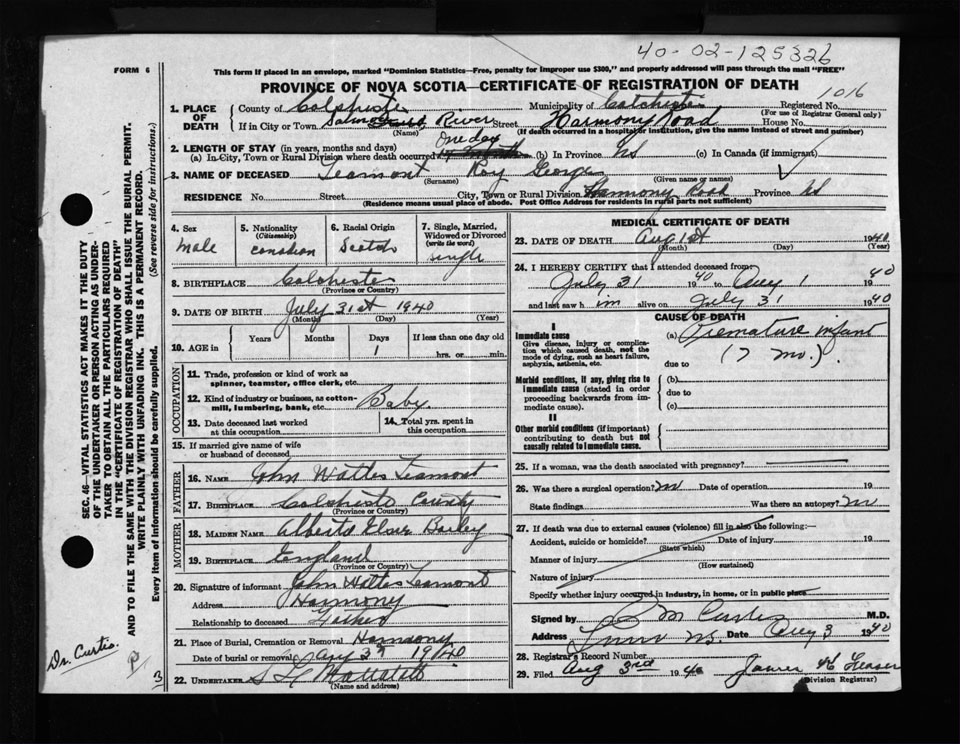 40-02-125326
FORM 6
This form if placed in an envelope, marked "Dominion Statistics—Free, penalty for improper use $300," and properly addressed will pass through the mail "FREE"
PROVINCE OF NOVA SCOTIA—CERTIFICATE OF REGISTRATION OF DEATH
1016
1. PLACE OF DEATH
County of Colchester Municipality of Colchester Registered No.
(For use of Registrar General only)
If in City or Town Salmon River Street Harmony Road House No.
(Name) (If death occurred in a hospital or institution, give the name instead of street and number)
2. LENGTH OF STAY (in years, months and days)
One day
(a) In City, Town or Rural Division where death occurred (b) In Province NS (c) In Canada (if immigrant)
3. NAME OF DECEASED Leamont Roy George
(Surname) (Given name or names)
RESIDENCE No. Street City, Town or Rural Division Harmony Road Province NS
(Residence means usual place of abode. Post Office Address for residents in rural parts not sufficient)
4. Sex
male
5. Nationality
(Citizenship)
canadian
6. Racial Origin
Scotch
7. Single, Married, Widowed or Divorced
(write the word)
single
8. BIRTHPLACE Colchester
(Province or Country)
9. DATE OF BIRTH July 31st 1940
(Month) (Day) (Year)
10. AGE in
Years Months Days If less than one day old
1 hrs. or min.
OCCUPATION
11. Trade, profession or kind of work as
spinner, teamster, office clerk, etc.
12. Kind of industry or business, as cotton-
mill, lumbering, bank, etc. Baby
13. Date deceased last worked
at this occupation
14. Total yrs. spent in
this occupation
15. If married give name of wife
or husband of deceased
FATHER
16. NAME John Leamont
17. BIRTHPLACE Colchester County
(Province or Country)
MOTHER
18. MAIDEN NAME Bailey
19. BIRTHPLACE England
(Province or Country)
20. Signature of informant John Leamont
Address Harmony
Relationship to deceased Father
21. Place of Burial, Cremation or Removal Harmony
Date of burial or removal Aug 3rd 1940
22. UNDERTAKER
(Name and address)
MEDICAL CERTIFICATE OF DEATH
23. DATE OF DEATH Aug 1st 1940
(Month) (Day)
24. I HEREBY CERTIFY that I attended deceased from
July 31 1940 to Aug 1 1940
and last saw him alive on July 31 1940
CAUSE OF DEATH
I
Immediate cause
Give disease, injury or complica-
tion which caused death, not the
mode of dying, such as heart failure,
asphyxia, asthenia, etc.
(a) Premature infant
(7 mo.)
due to
Morbid conditions, if any, giving rise to
immediate cause (stated in order
proceeding backwards from im-
mediate cause).
(b)
due to
(c)
II
Other morbid conditions (if important)
contributing to death but not
causally related to immediate cause.
25. If a woman, was the death associated with pregnancy?
26. Was there a surgical operation? no Date of operation 19
State findings Was there an autopsy? no
27. If death was due to external causes (violence) fill in also the following:—
Accident, suicide or homicide? Date of injury 19
(State which)
Manner of injury
(How sustained)
Nature of injury
Specify whether injury occurred in industry, in home, or in public place
Signed by Curtis M.D.
Address Truro NS. Date Aug 3 1940
28. Registrar's Record Number
29. Filed Aug 3rd 1940
(Division Registrar)
SEC. 46—VITAL STATISTICS ACT MAKES IT THE DUTY
OF THE UNDERTAKER OR PERSON ACTING AS UNDER-
TAKER TO OBTAIN ALL THE PARTICULARS REQUIRED
IN THE "CERTIFICATE OF REGISTRATION OF DEATH"
AND TO FILE THE SAME WITH THE DIVISION REGISTRAR WHO SHALL ISSUE THE BURIAL PERMIT.
WRITE PLAINLY WITH UNFADING INK. THIS IS A PERMANENT RECORD.
Every item of information should be carefully supplied. (See reverse side for instructions.)
Dr. Curtis.
3